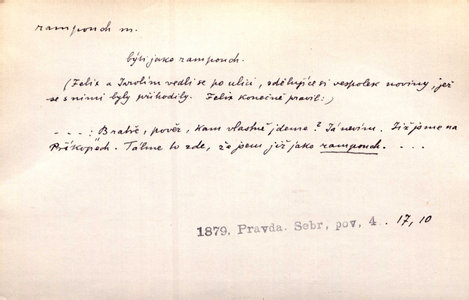 rampouch m.
býti jako rampouch.
(Felix a Jarolím vedli se po ulici, sdělujíce si vespolek noviny, jež
se s nimi byly přihodily. Felix konečně pravil:)
- - - : Bratře, pověz, kam vlastně jdeme? Já nevím. Již jsme na
Příkopěch. Táhne to zde, že jsem již jako rampouch. . . .
1879. Pravda. Sebr, pov, 4 . 17, 10